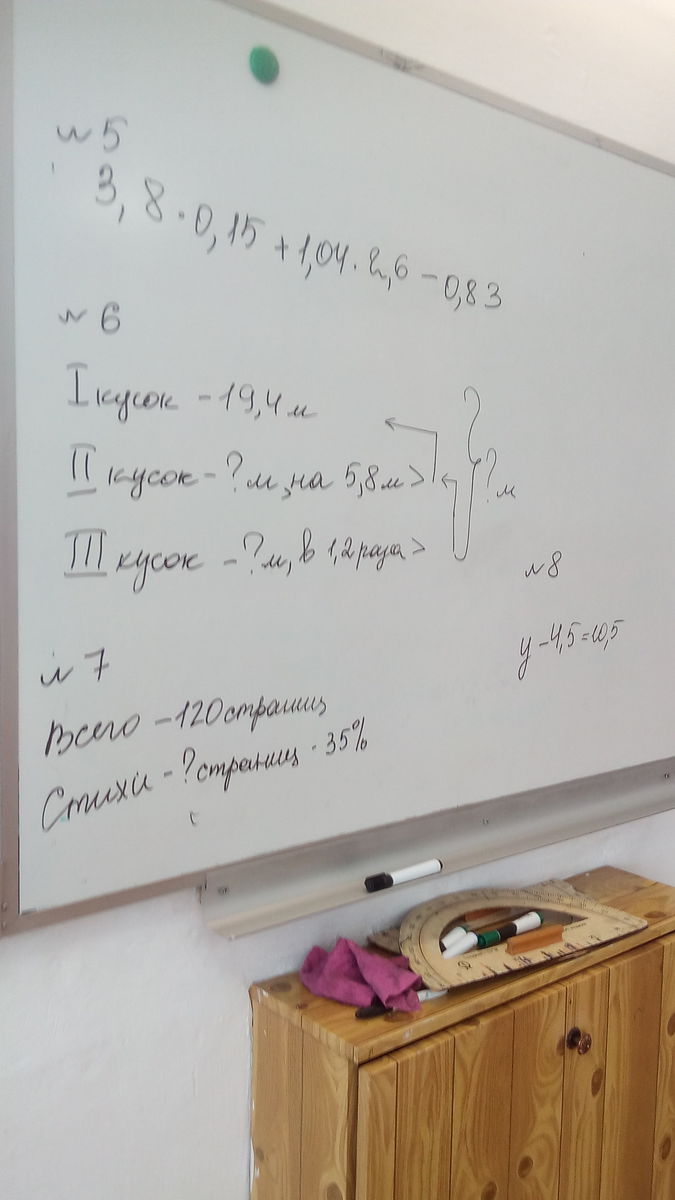 №5
3,8·0,15+1,04·2,6-0,83
№6
I кусок - 19,4м
II кусок - ?м, на 5,8м >
?м
III кусок - ?м, в 1,2 раза >
№8
у-4,5=10,5
№7
Всего - 120 страниц
Стихи - ? страниц · 35%